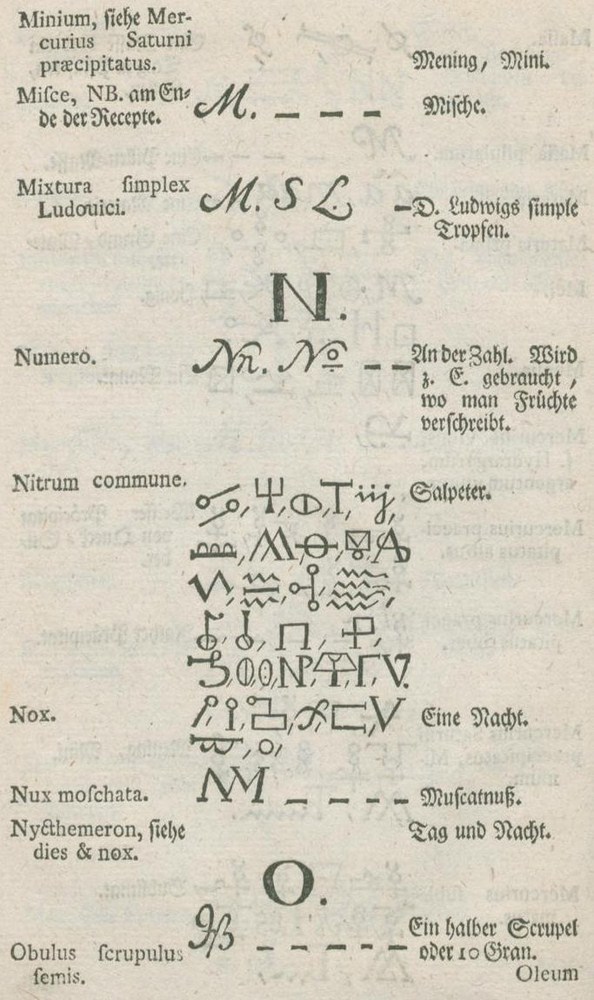 Minium, ſiehe Mer-
curius Saturni
præcipitatus. Mening, Mini.
Miſce, NB. am En-
de der Recepte. M. – – – – Miſche.
Mixtura ſimplex
Ludouici. M. S L. – D. Ludwigs ſimple
Tropfen.
N.
Numero. Nr. No – – An der Zahl. Wird
z. E. gebraucht,
wo man Früchte
verſchreibt.
Nitrum commune. Salpeter.
Nox. Eine Nacht.
Nux moſchata. NM – – – – Muſcatnuß.
Nyčthemeron, ſiehe Tag und Nacht.
dies & nox.
O.
Ein halber Scrupel
Obulus ſcrupulus – – – – – oder 10 Gran.
ſemis.
Oleum